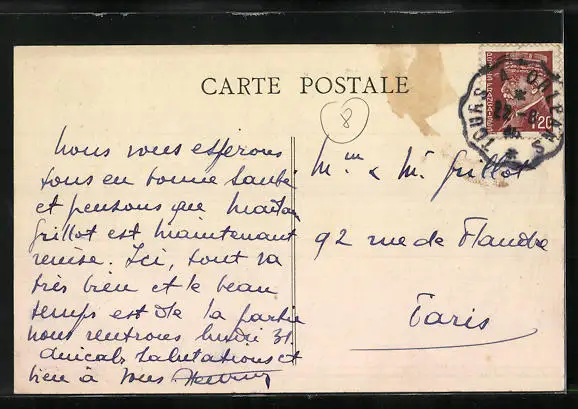 CARTE POSTALE
8
TOURS A ORLEANS
1.20
nous vous espérons
tous en bonne santé
et pensons que
Grillot est maintenant
remise. Ici, tout va
très bien et le beau
temps est de la partie
nous rentrons lundi 31.
amicales salutations et
bien à vous
Mme & M. Grillot
92 rue de Flandre
Paris